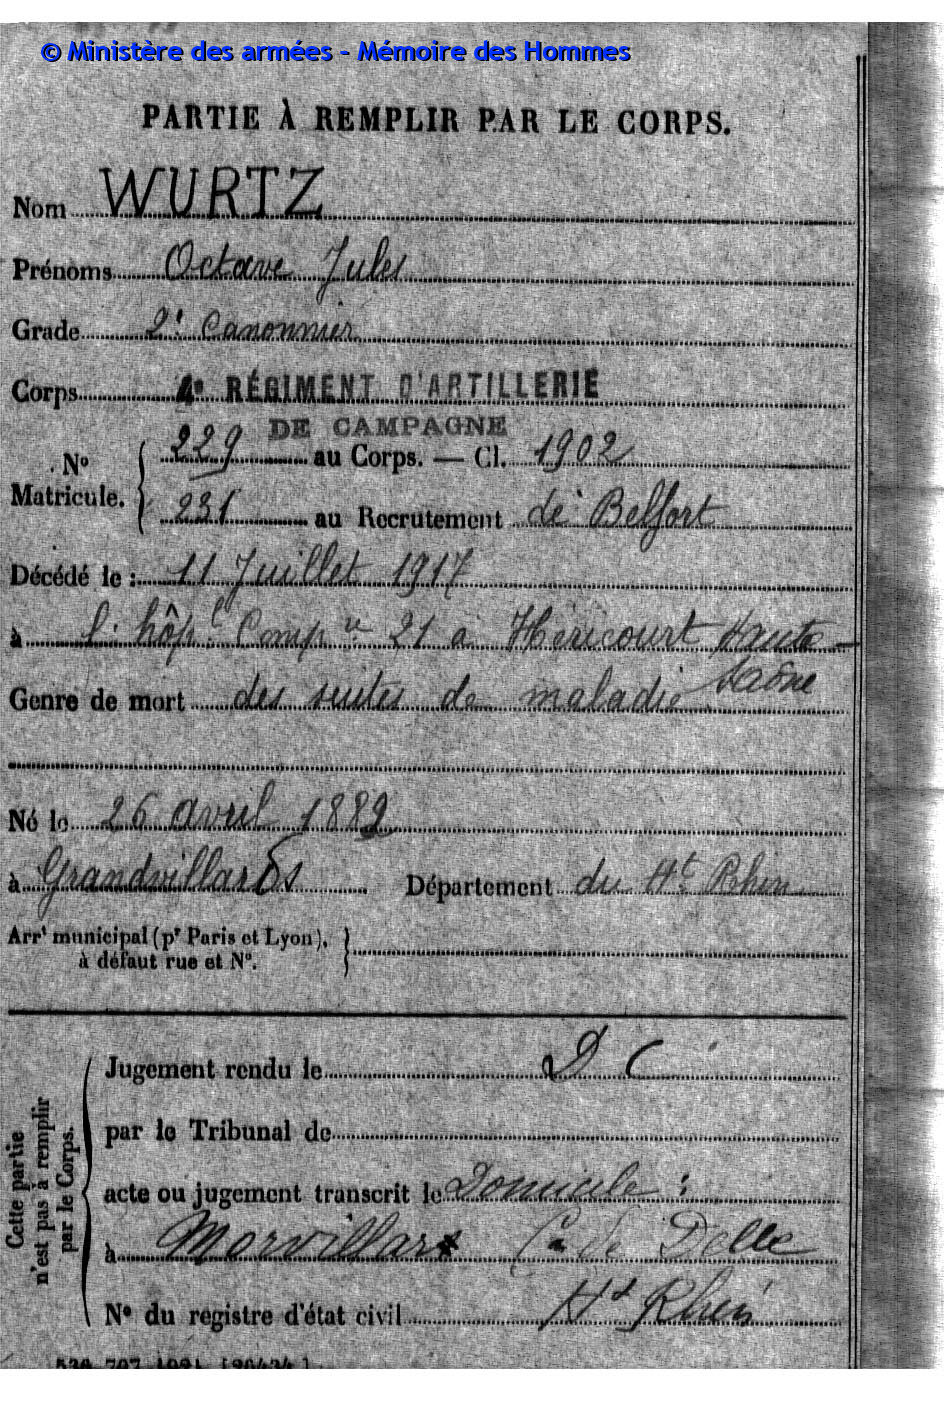 © Ministère des armées - Mémoire des Hommes
PARTIE À REMPLIR PAR LE CORPS.
Nom WURTZ
Prénoms Octave Jules
Grade 2e Canonnier
Corps 4e RÉGIMENT D'ARTILLERIE
DE CAMPAGNE
No Matricule. 229 au Corps. — Cl. 1902
231 au Recrutement de Belfort
Décédé le : 11 Juillet 1917
à l'hôpl Compre 21 à Héricourt Haute-
Saône
Genre de mort des suites de maladie
Né le 26 avril 1882
à Grandvillars Département du Ht Rhin
Arrt municipal (pr Paris et Lyon),
à défaut rue et No.
Cette partie
n'est pas à remplir
par le Corps.
Jugement rendu le D C
par le Tribunal de
acte ou jugement transcrit le Domicile :
à Morvillars Con de Delle
No du registre d'état civil Ht Rhin